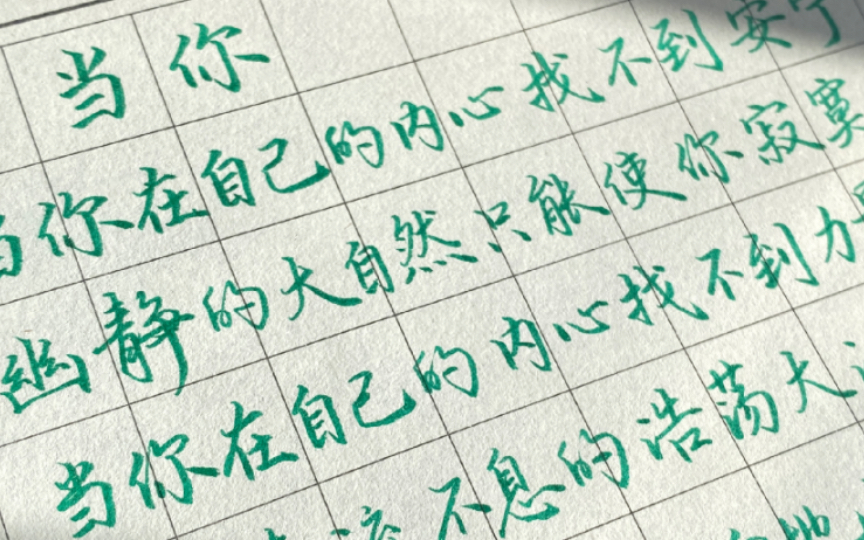 当你
当你在自己的内心找不到安宁
幽静的大自然只能使你寂寞
当你在自己的内心找不到力
不息的浩荡大